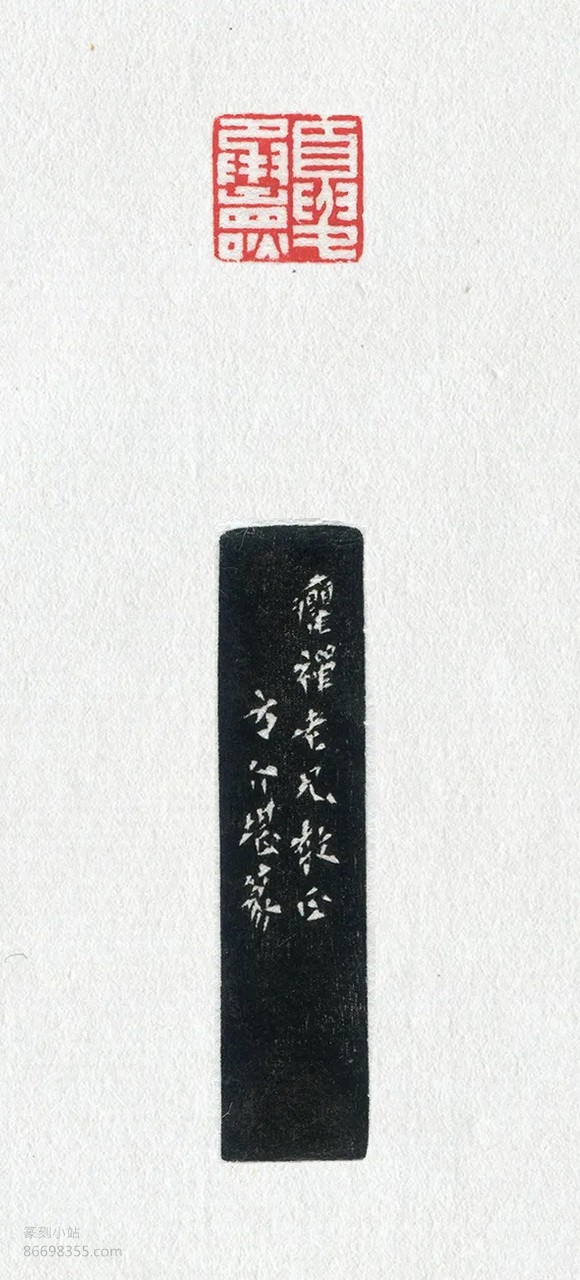 癯禪老兄教正
方介堪篆
篆刻小站
86698355.com